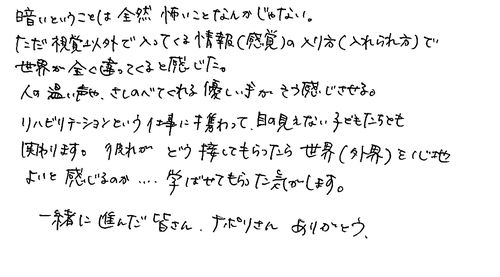 暗いということは全然怖いことなんかじゃない。
ただ視覚以外で入ってくる情報(感覚)の入り方(入れられ方)で
世界が全く違ってくると感じた。
人の温い声や、さしのべてくれる優しい手がそう感じさせる。
リハビリテーションという仕事に携わって、目の見えない子どもたちとも
関わります。彼れが どう接してもらったら世界(外界)を心地
よいと感じるのか‥‥学ばせてもらった気がします。
一緒に進んだ皆さん、ナポリさん ありがとう、